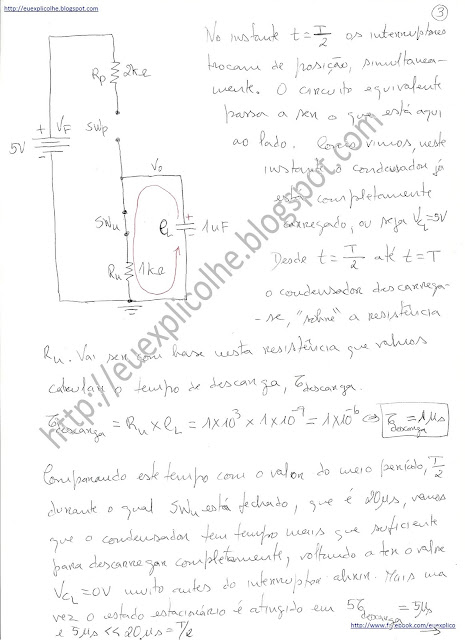 http://euexplicolhe.blogspot.com
3
No instante t = T/2 os interruptores
trocam de posição, simultanea-
mente. O circuito equivalente
passa a ser o que está aqui
ao lado. Como vimos, neste
instante o condensador já
está completamente
carregado, ou seja VCL=5V
Desde t = T/2 até t=T
o condensador descarrega-
-se, "sobre" a resistência
Rp 2kΩ
SWp
5V + VF -
Vo
SWn
CL + 1uF
Rn 1kΩ
Rn. Vai ser com base nesta resistência que vamos
calcular o tempo de descarga, τdescarga.
τdescarga = Rn x CL = 1x10^3 x 1x10^-9 = 1x10^-6 <=> τdescarga = 1μs
Comparando este tempo com o valor do meio período, T/2
durante o qual SWn está fechado, que é 20μs, vemos
que o condensador tem tempo mais que suficiente
para descarregar completamente, voltando a ter o valor
VCL = 0V muito antes do interruptor abrir. Mais uma
vez o estado estacionário é atingido em 5τdescarga = 5μs
e 5μs << 20μs = T/2
http://euexplicolhe.blogspot.com
http://www.facebook.com/euexplico